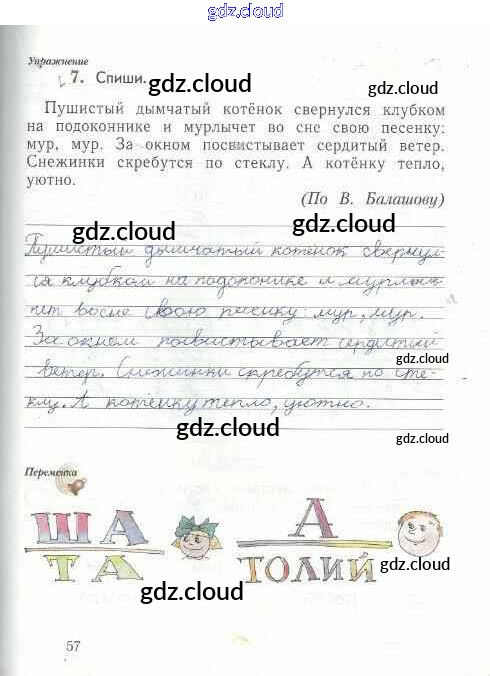 gdz.cloud
Упражнение
7. Спиши.
gdz.cloud
gdz.cloud
Пушистый дымчатый котёнок свернулся клубком
на подоконнике и мурлычет во сне свою песенку:
мур, мур. За окном посвистывает сердитый ветер.
Снежинки скребутся по стеклу. А котёнку тепло,
уютно.
gdz.cloud
(По В. Балашову)
gdz.cloud
gdz.cloud
Пушистый дымчатый котёнок свернул-
ся клубком на подоконике и мурлыч-
gdz.cloud
ет во сне свою песенку: мур, мур.
gdz.cloud
За окном посвистывает сердитый
gdz.cloud
ветер. Снежинки скребутся по сте-
клу. А котёнку тепло, уютно.
gdz.cloud
gdz.cloud
Переменка
gdz.cloud
ША
ТА
А
ТОЛИЙ
gdz.cloud
gdz.cloud
gdz.cloud
57
gdz.cloud
gdz.cloud